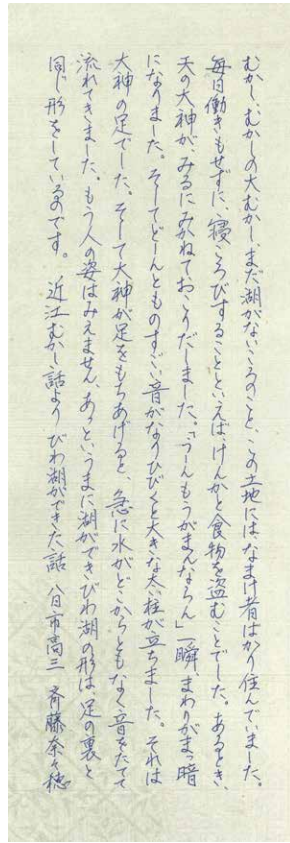 むかし、むかしの大むかし、まだ湖がないころのこと、この土地には、なまけ者ばかり住んでいました。
毎日働きもせずに、寝ころびすることといえば、けんかと食物を盗むことでした。あるとき、
天の大神が、みるにみかねておこりだしました。「うーんもうがまんならん」一瞬、まわりがまっ暗
になりました。そしてどーんとものすごい音がなりひびくと大きな太い柱が立ちました。それは
大神の足でした。そして大神が足をもちあげると、急に水がどこからともなく音をたてて
流れてきました。もう人の姿はみえません、あっというまに湖ができびわ湖の形は、足の裏と
同じ形をしているのです。 近江むかし話より びわ湖ができた話 八日市高三 斉藤奈々穂